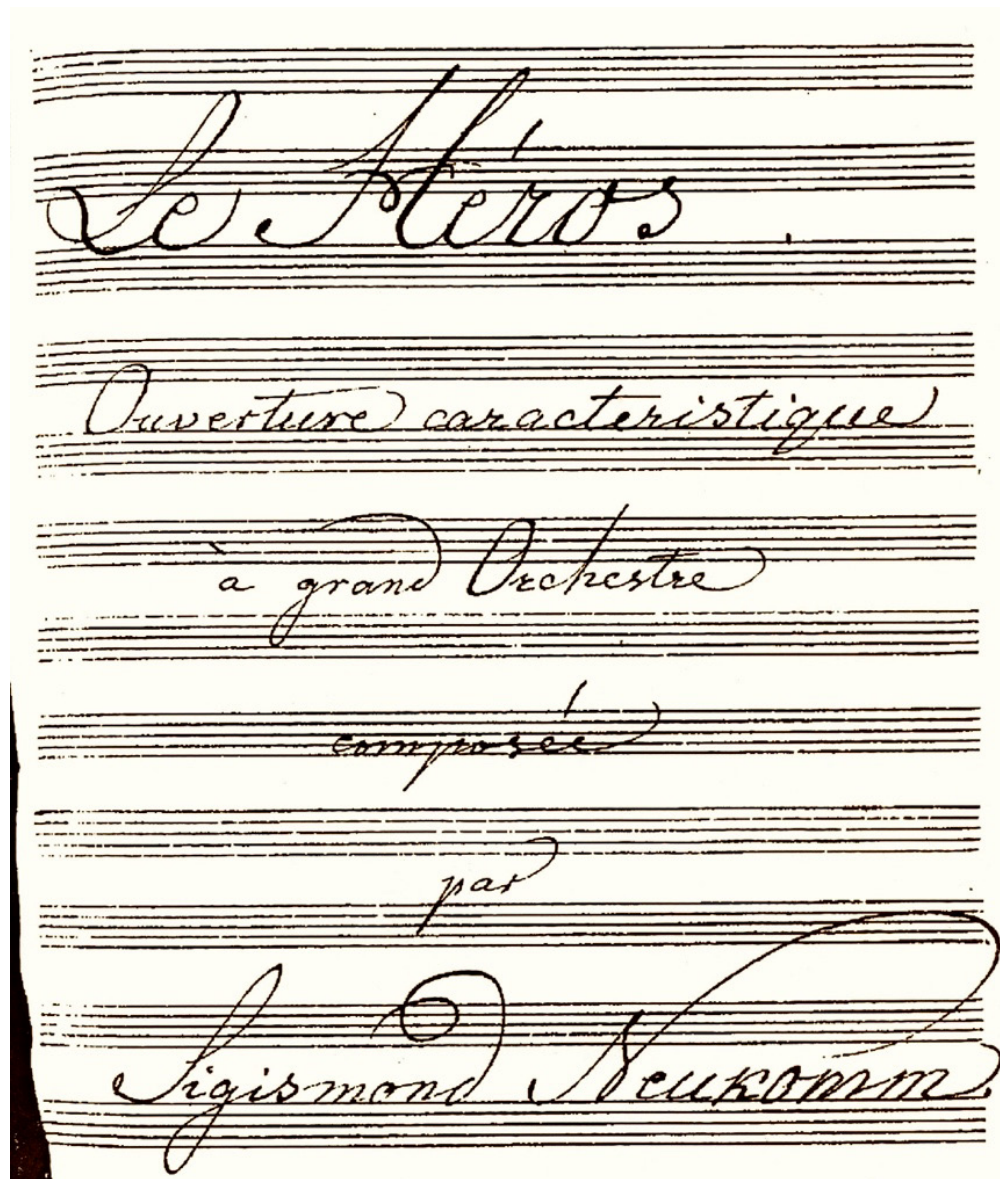 Le Héros.
Ouverture caracteristique
à grand Orchestre
composée
par
Sigismond Neukomm.